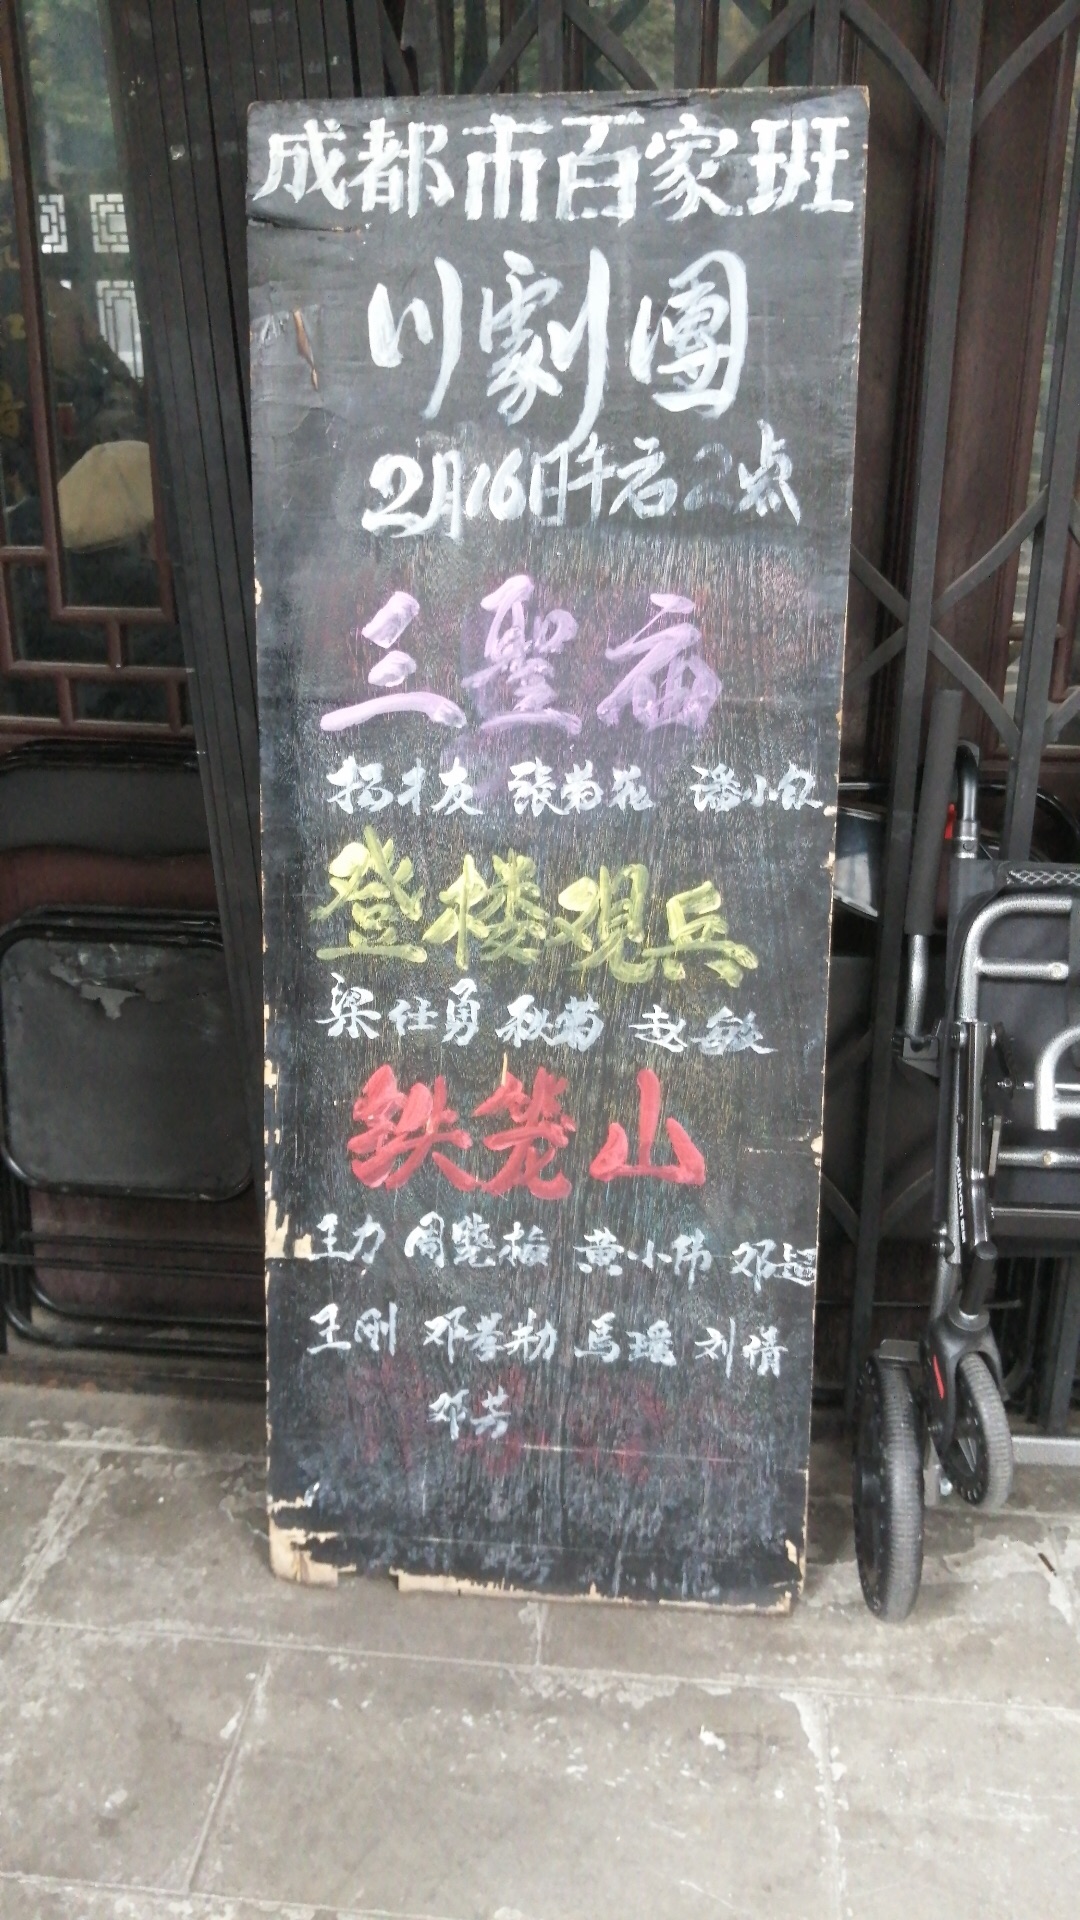 成都市百家班
川劇團
2月16日午后2点
三聖庙
杨才友 張菊花 潘小
登楼观兵
梁仕勇 秋菊 赵敏
鉄笼山
王力 周 黄小伟 邓超
王刚 邓孝勋 馬瑶 刘倩
邓芳